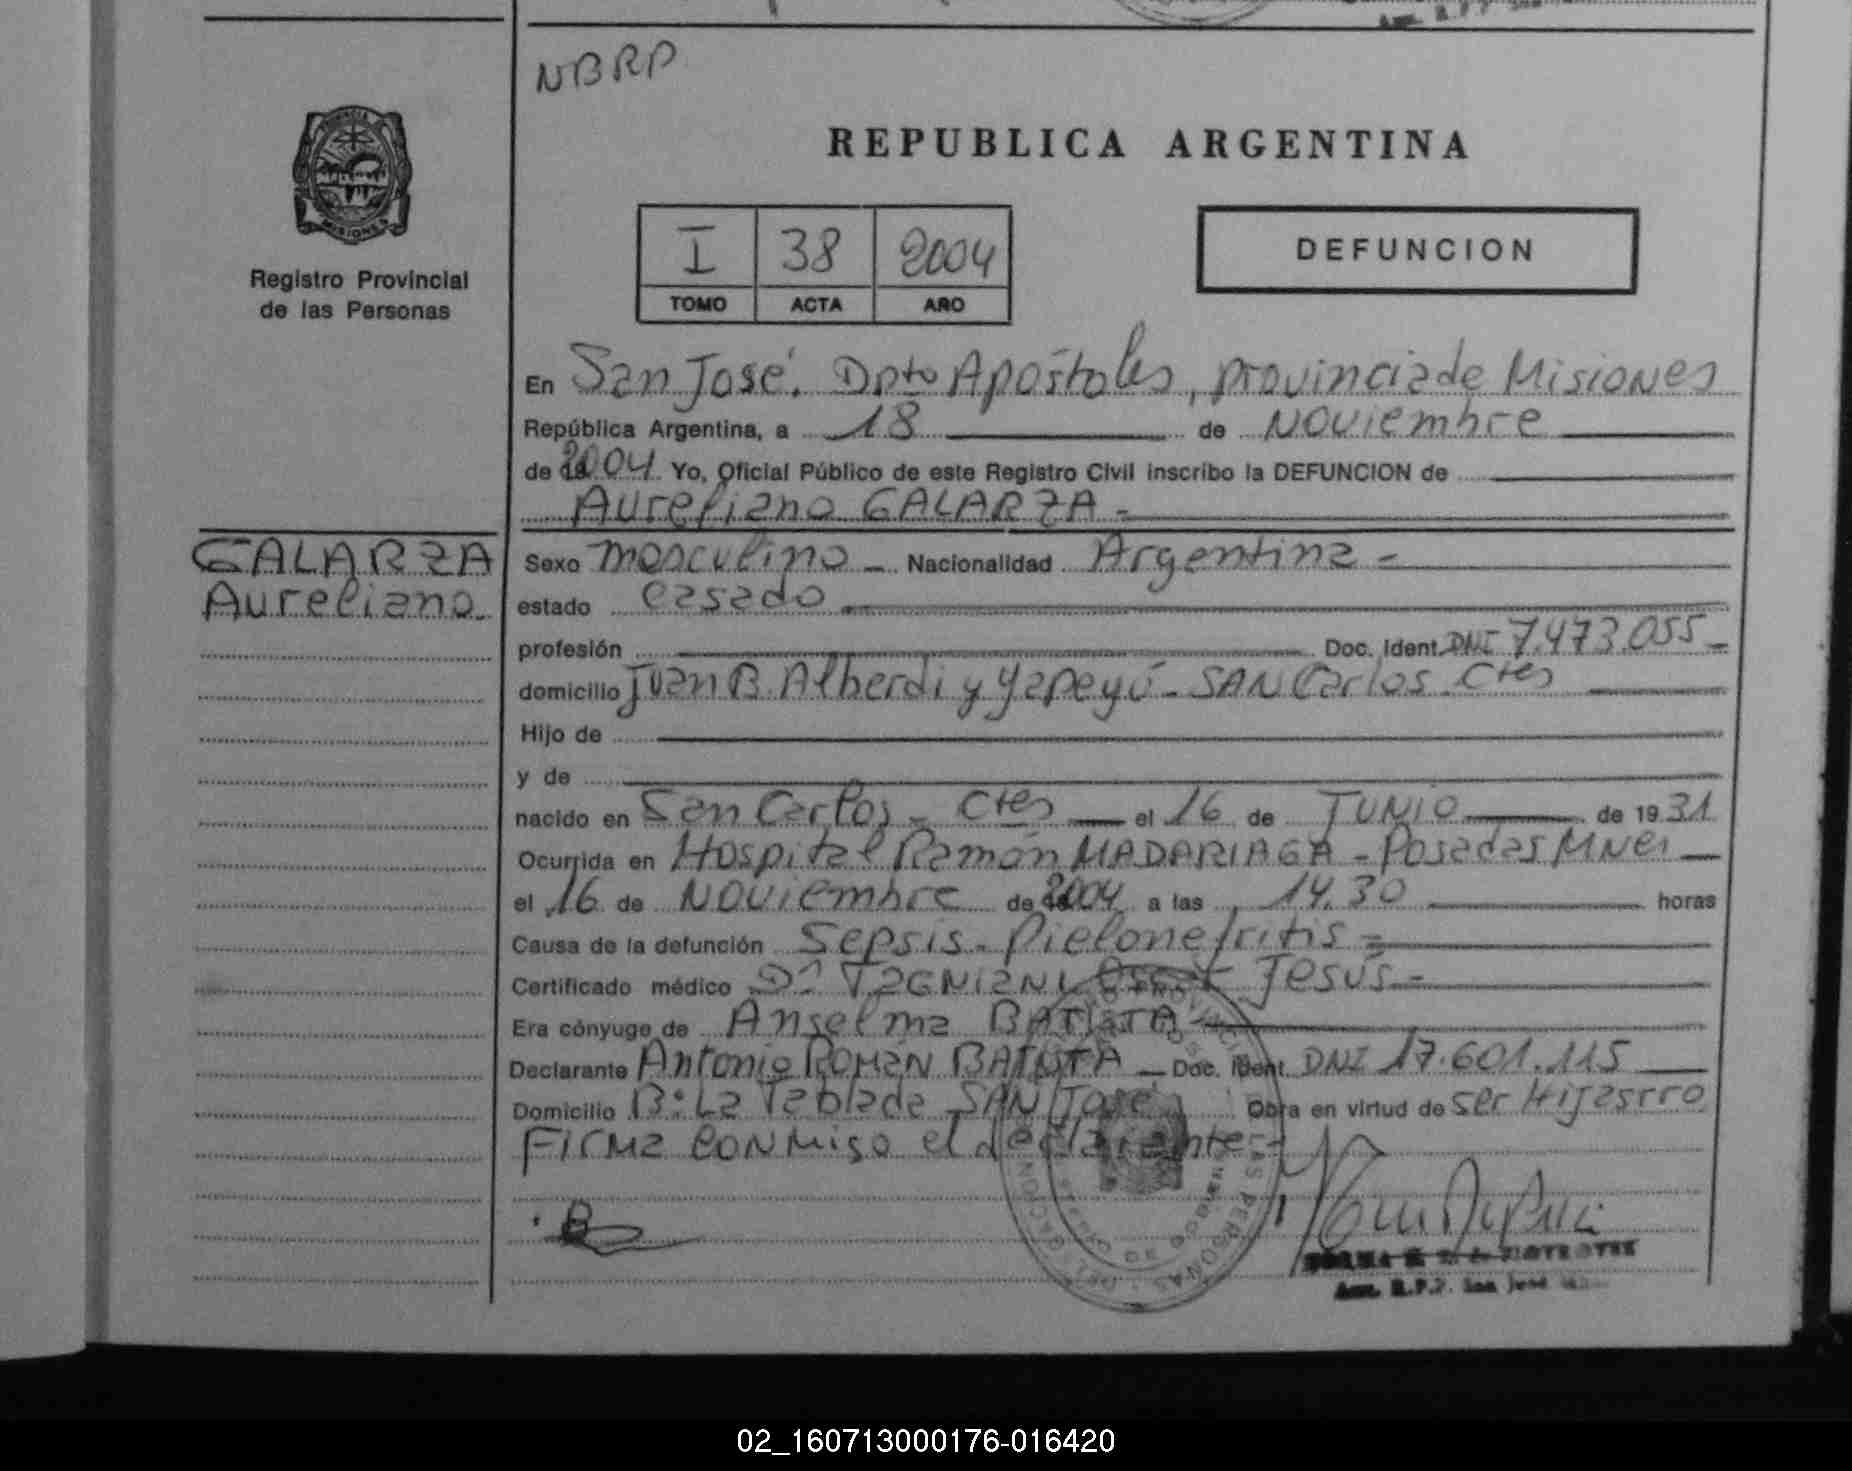 NBRP
REPUBLICA ARGENTINA
PROVINCIA
MISIONES
Registro Provincial
de las Personas
I 38 2004
TOMO ACTA AÑO
DEFUNCION
En San José. Dpto Apóstoles, provincia de Misiones
República Argentina, a 18 de Noviembre
de 2004 Yo, Oficial Público de este Registro Civil inscribo la DEFUNCION de
Aureliano GALARZA -
GALARZA
Aureliano
Sexo masculino - Nacionalidad Argentina -
estado casado
profesión Doc. Ident. DNI 7.473.055 -
domicilio Juan B. Alberdi y Yapeyú - SAN Carlos. Ctes
Hijo de
y de
nacido en San Carlos - Ctes el 16 de JUNIO de 1931
Ocurrida en Hospital Ramón MADARIAGA - Posadas MNes
el 16 de Noviembre de 2004 a las 14.30 horas
Causa de la defunción Sepsis - Pielonefritis -
Certificado médico Jesús -
Era cónyuge de Anselma BATISTA -
Declarante Antonio ROMÁN BATISTA - Doc. Ident. DNI 17.601.115
Domicilio B: La Tablada SAN José Obra en virtud de ser Hijastro
Firma conmigo el declarante -
Aux. R.P.P. San José
02_160713000176-016420